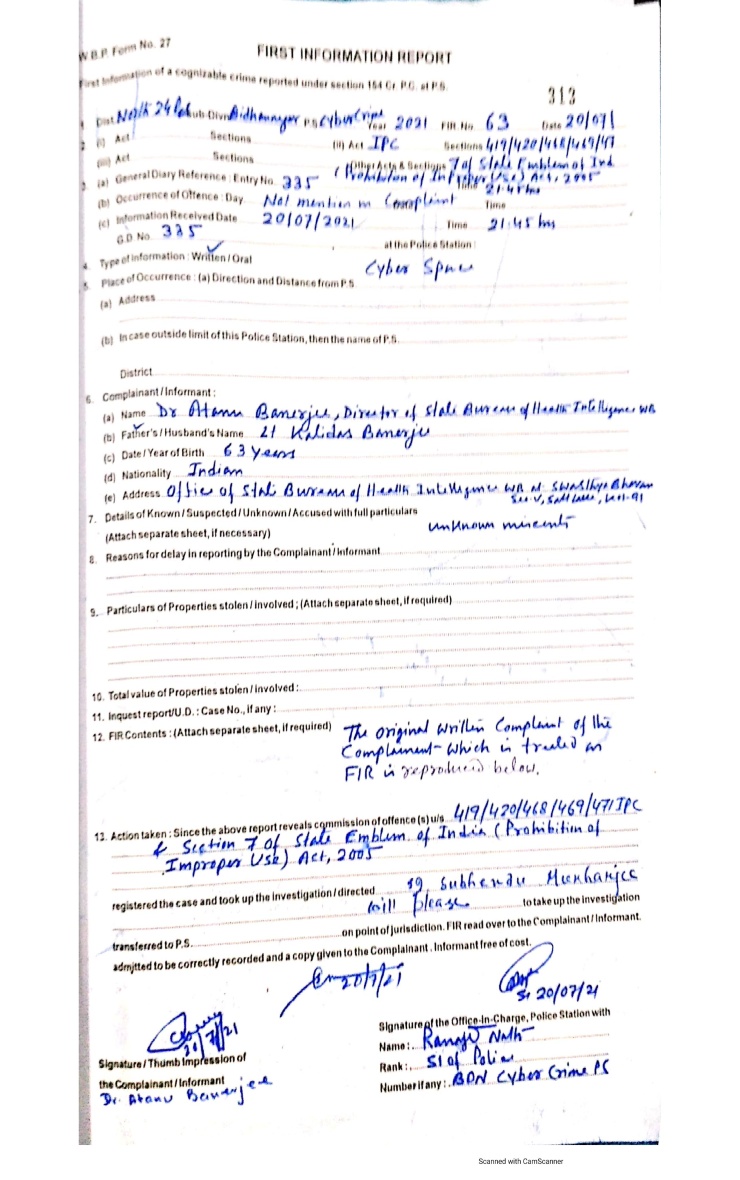 W.B.P. Form No. 27
FIRST INFORMATION REPORT
First Information of a cognizable crime reported under section 154 Cr. P.C. at P.S.
313
1. Dist. North 24 Sub-Divn. Bidhannagar P.S. Cyber Crime Year 2021 FIR No. 63 Date 20/07/
2. (i) Act Sections (ii) Act IPC Sections 419/420/468/469/471
(iii) Act Sections (Other Acts & Sections 7 of State Emblem of Ind
(Prohibition of Improper Use) Act, 2005
3. (a) General Diary Reference : Entry No. 335 Time 21:45 hrs
(b) Occurrence of Offence : Day Not mention in Complaint Time
(c) Information Received Date 20/07/2021 Time 21:45 hrs
G.D No. 335 at the Police Station :
4. Type of information : Written / Oral
5. Place of Occurrence : (a) Direction and Distance from P.S. Cyber Space
(a) Address
(b) In case outside limit of this Police Station, then the name of P.S.
District
6. Complainant / Informant :
(a) Name Dr Atanu Banerjee, Director of State Bureau of Health Intelligence WB
(b) Father's / Husband's Name Lt Kalidas Banerjee
(c) Date / Year of Birth 63 Years
(d) Nationality Indian
(e) Address Office of State Bureau of Health Intelligence WB at Swasthya Bhavan
Sec-V, Salt Lake, Kol-91
7. Details of Known / Suspected / Unknown / Accused with full particulars
(Attach separate sheet, if necessary) unknown
8. Reasons for delay in reporting by the Complainant / Informant
9. Particulars of Properties stolen / involved ; (Attach separate sheet, if required)
10. Total value of Properties stolen / involved :
11. Inquest report/U.D. : Case No., if any :
12. FIR Contents : (Attach separate sheet, if required) The original written Complaint of the
Complainant which is treated as
FIR is reproduced below.
13. Action taken : Since the above report reveals commission of offence (s) u/s 419/420/468/469/471 IPC
& Section 7 of State Emblem of India (Prohibition of
Improper Use) Act, 2005
registered the case and took up the investigation / directed SI Subhendu Mukharjee
will please to take up the investigation
transferred to P.S. on point of jurisdiction. FIR read over to the Complainant / Informant.
admitted to be correctly recorded and a copy given to the Complainant. Informant free of cost.
20/7/21
SI 20/07/21
20/7/21
Signature of the Office-In-Charge, Police Station with
Name : Nath
Signature / Thumb Impression of
Rank : SI of Police
the Complainant / Informant
Number if any : BDN Cyber Crime PS
Dr. Atanu Banerjee
Scanned with CamScanner